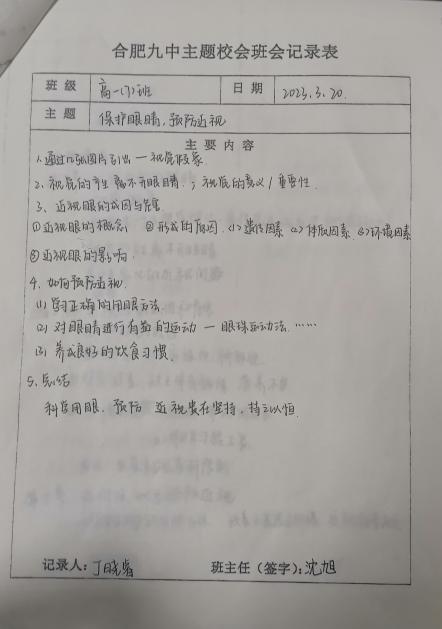 合肥九中主题校会班会记录表
班 级 高一(7)班 日 期 2023.3.20.
主 题 保护眼睛,预防近视
主 要 内 容
1.通过几张图片引出一视觉现象.
2、视觉的产生离不开眼睛.;视觉的意义/重要性.
3、近视眼的成因与危害
①近视眼的概念; ②形成的原因.(1)遗传因素 (2)体质因素 (3)环境因素
③近视眼的影响.
4.如何预防近视.
(1)学习正确的用眼方法
(2)对眼睛进行有益的运动—眼球运动法.……
(3)养成良好的饮食习惯.
5.总结
科学用眼.预防 近视贵在坚持,持之以恒.
记录人:丁晓 班主任(签字):沈旭